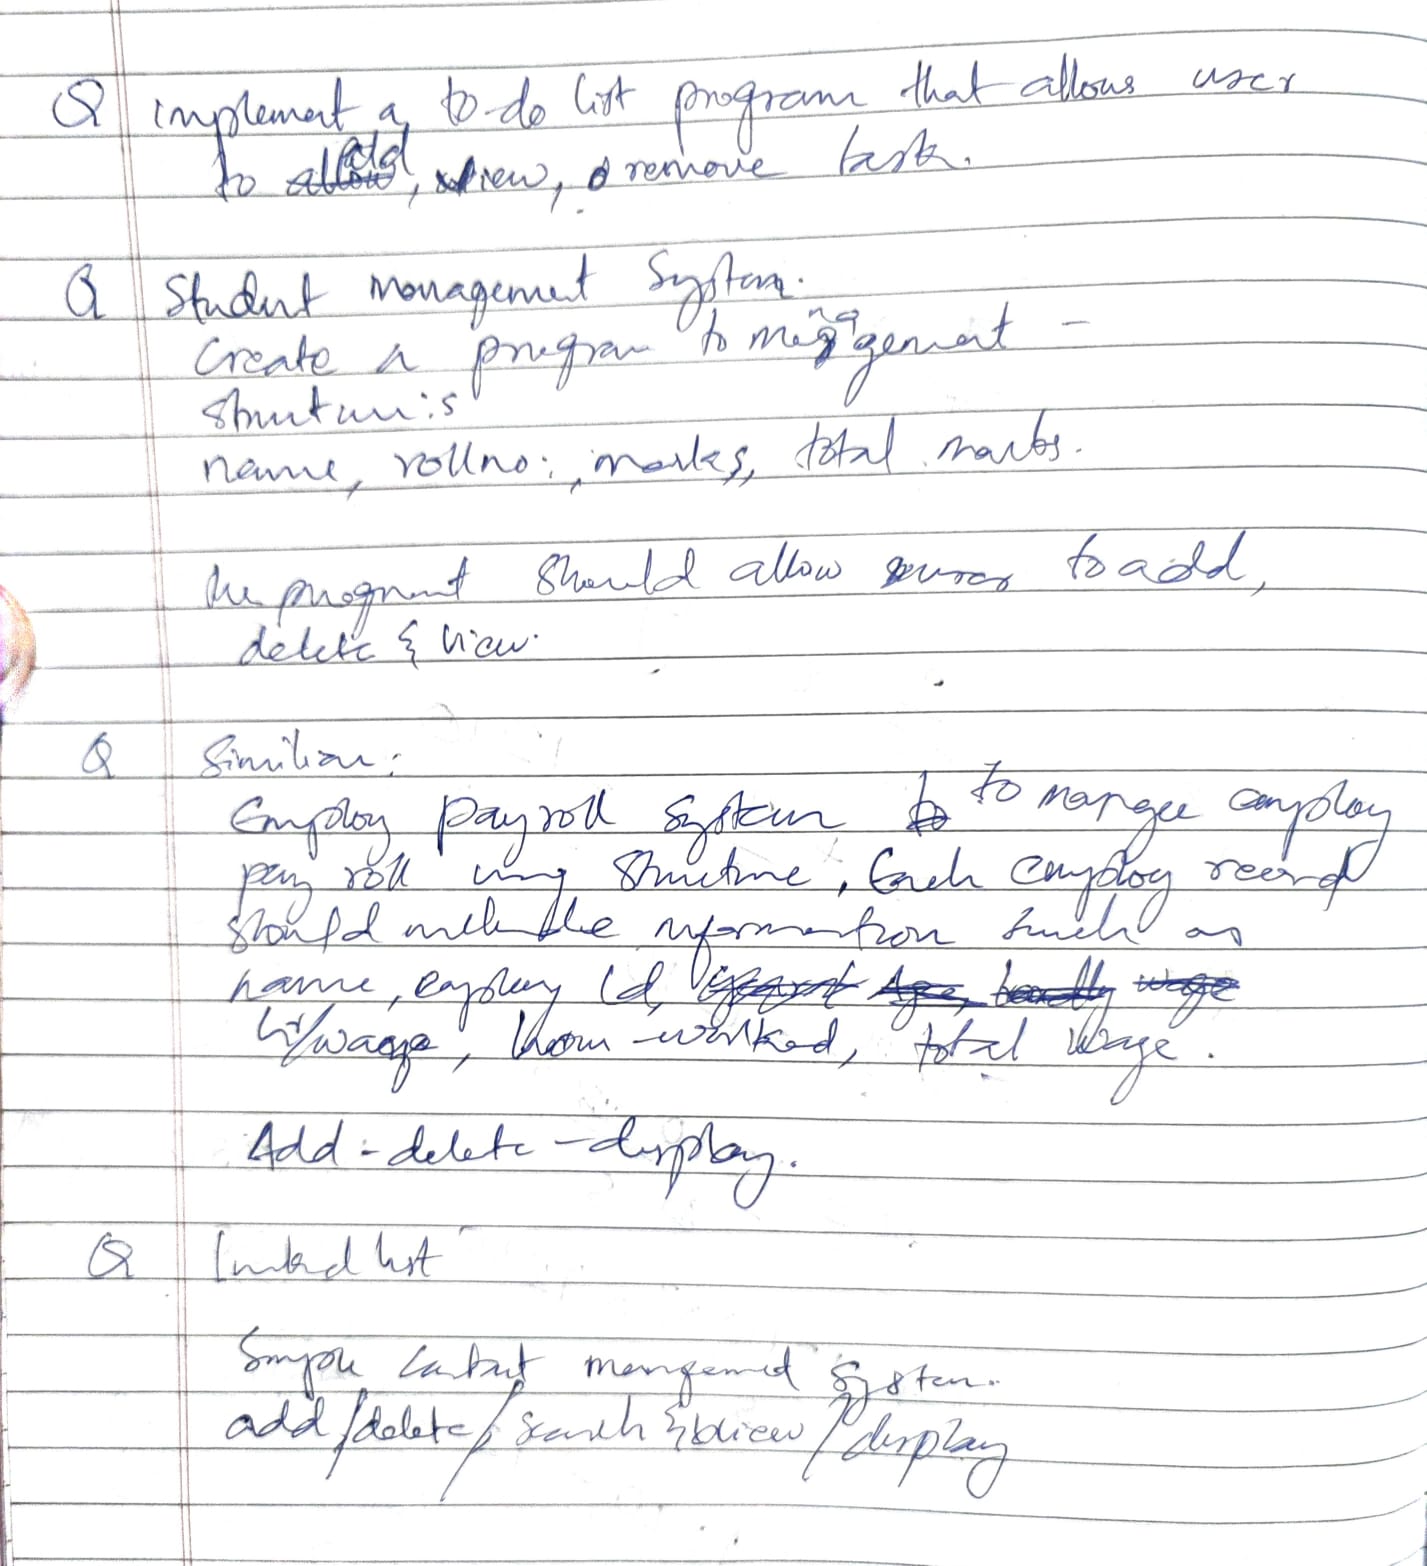 Q implement a to-do list program that allows user
to add, view, remove task.
Q Student management System.
Create a program to management -
structure:s
name, rollno:, marks, total marks.
the program should allow user to add,
delete & view.
Q Similiar:
Employ payroll system to manage employ
pay roll using Structure, Each employ record
should include information such as
name, employ id,
hr/wage, hour-worked, total wage.
Add - delete - display.
Q linked list
Simple contact management system.
add/delete/search & view/display